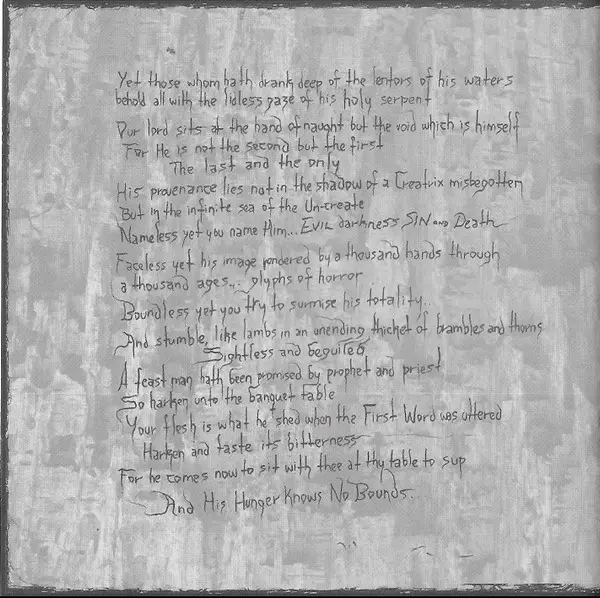 Yet those whom hath drank deep of the lentors of his waters
behold all with the lidless gaze of his holy serpent
Our lord sits at the hand of naught but the void which is himself
For He is not the second but the first
The last and the only
His provenance lies not in the shadow of a Creatrix misbegotten
But in the infinite sea of the Un-create
Nameless yet you name Him... EVIL darkness SIN AND Death
Faceless yet his image rendered by a thousand hands through
a thousand ages... glyphs of horror
Boundless yet you try to surmise his totality..
And stumble, like lambs in an unending thicket of brambles and thorns
Sightless and beguiled
A feast man hath been promised by prophet and priest
So harken unto the banquet table
Your flesh is what he shed when the First Word was uttered
Harken and taste its bitterness
For he comes now to sit with thee at thy table to sup
And His Hunger Knows No Bounds..